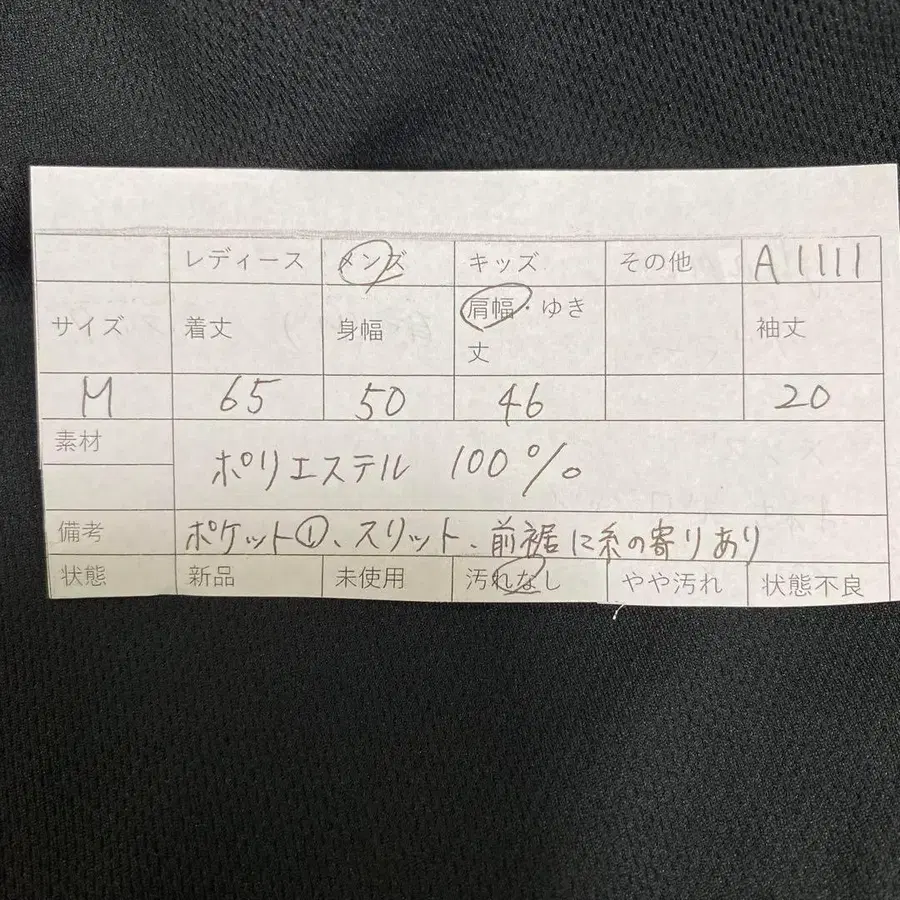 レディース メンズ キッズ その他 A1111
サイズ 着丈 身幅 肩幅・ゆき丈 袖丈
M 65 50 46 20
素材 ポリエステル 100%
備考 ポケット①、スリット、前裾に糸の寄りあり
状態 新品 未使用 汚れなし やや汚れ 状態不良